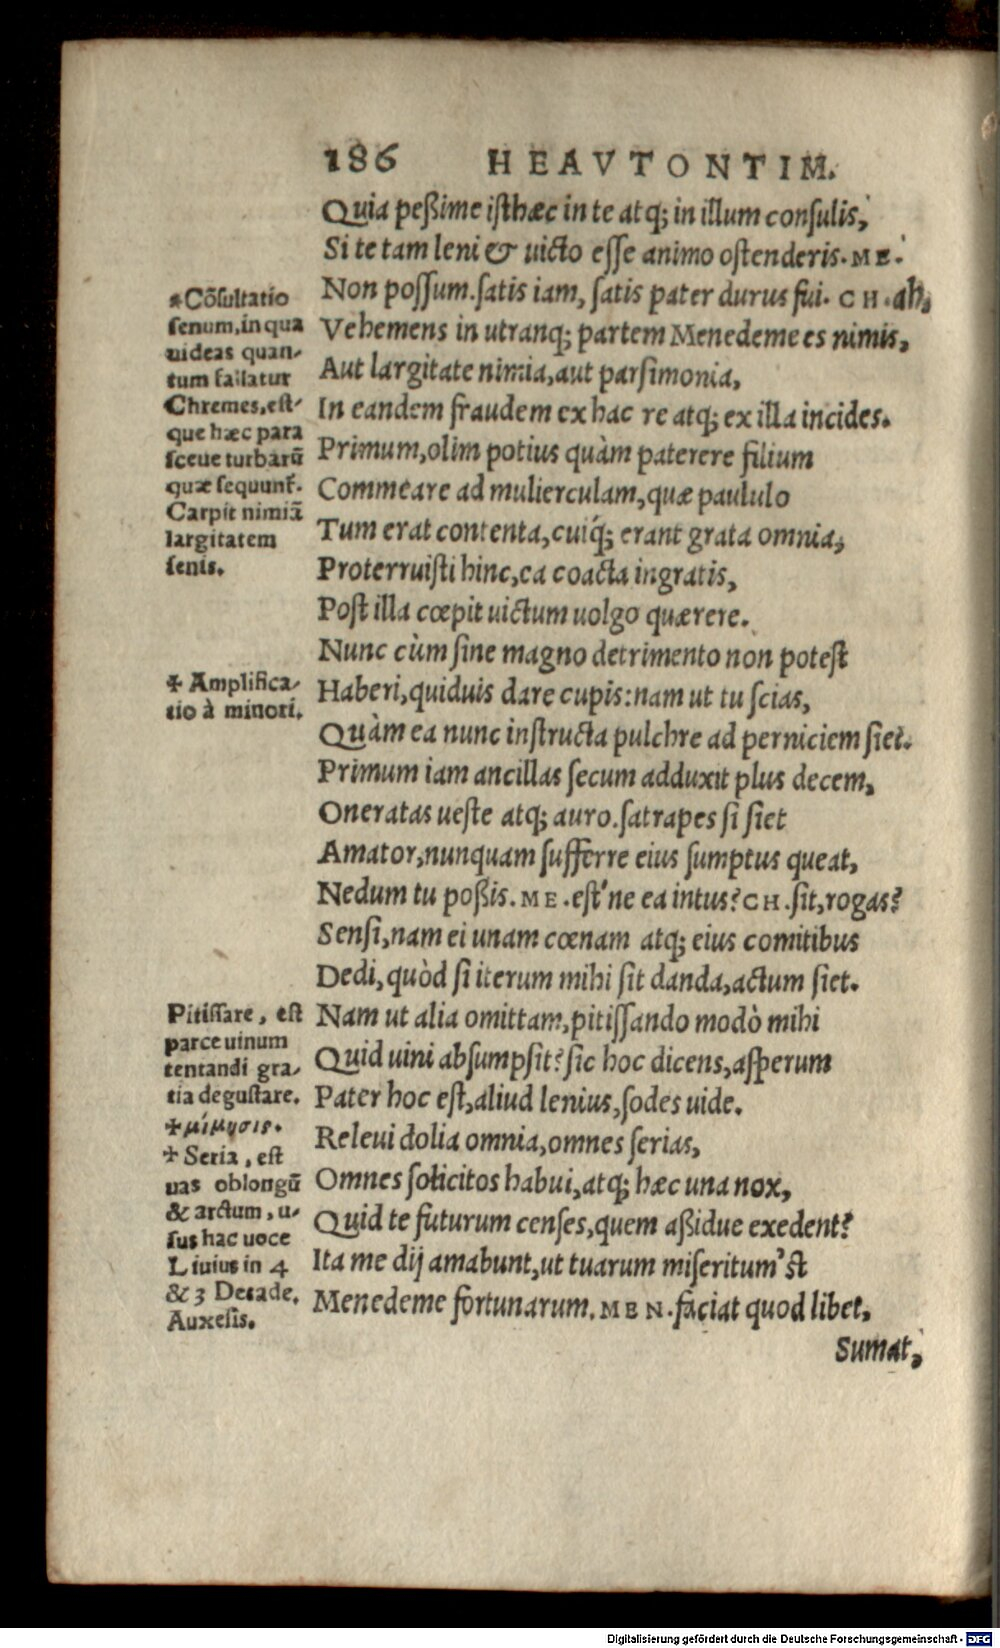 186 HEAVTONTIM.
Quia peßime isthæc in te atq; in illum consulis,
Si te tam leni & uicto esse animo ostenderis. ME.
Non possum. satis iam, satis pater durus fui. CH. ah,
Vehemens in utranq; partem Menedeme es nimis,
Aut largitate nimia, aut parsimonia,
In eandem fraudem ex hac re atq; ex illa incides.
Primum, olim potius quàm paterere filium
Commeare ad mulierculam, quæ paululo
Tum erat contenta, cuiq́; erant grata omnia,
Proterruisti hinc, ea coacta ingratis,
Post illa cœpit uictum uolgo quærere.
Nunc cùm sine magno detrimento non potest
Haberi, quiduis dare cupis: nam ut tu scias,
Quàm ea nunc instructa pulchre ad perniciem siet.
Primum iam ancillas secum adduxit plus decem,
Oneratas ueste atq; auro. satrapes si siet
Amator, nunquam sufferre eius sumptus queat,
Nedum tu poßis. ME. est'ne ea intus? CH. sit, rogas?
Sensi, nam ei unam cœnam atq; eius comitibus
Dedi, quòd si iterum mihi sit danda, actum siet.
Nam ut alia omittam, pitissando modò mihi
Quid uini absumpsit? sic hoc dicens, asperum
Pater hoc est, aliud lenius, sodes uide.
Releui dolia omnia, omnes serias,
Omnes solicitos habui, atq; hæc una nox,
Quid te futurum censes, quem aßidue exedent?
Ita me dij amabunt, ut tuarum miseritum'st
Menedeme fortunarum. MEN. faciat quod libet,
Sumat,
*Cõsultatio
senum, in qua
uideas quan-
tum fallatur
Chremes, est-
que hæc para
sceue turbarũ
quæ sequunt̃.
Carpit nimiã
largitatem
senis.
✠ Amplifica-
tio à minori.
Pitissare, est
parce uinum
tentandi gra-
tia degustare.
✠μίμησις.
✠ Seria, est
uas oblongũ
& arctum, u-
sus hac uoce
Liuius in 4
& 3 Decade.
Auxesis.
Digitalisierung gefördert durch die Deutsche Forschungsgemeinschaft - DFG